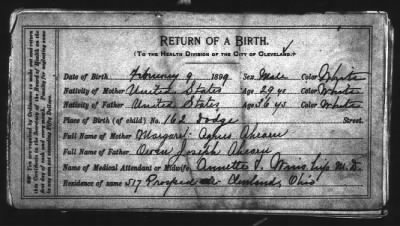 RETURN OF A BIRTH.
(TO THE HEALTH DIVISION OF THE CITY OF CLEVELAND.)
Date of Birth February 9, 1899 Sex Male Color White
Nativity of Mother United States Age 29 ys Color White
Nativity of Father United States Age 36 ys Color White
Place of Birth (of child) No. 162 Dodge Street.
Full Name of Mother Margaret Agnes Ahearn
Full Name of Father Owen Joseph Ahearn
Name of Medical Attendant or Midwife Annette M.D.
Residence of same 517 Prospect Cleveland, Ohio